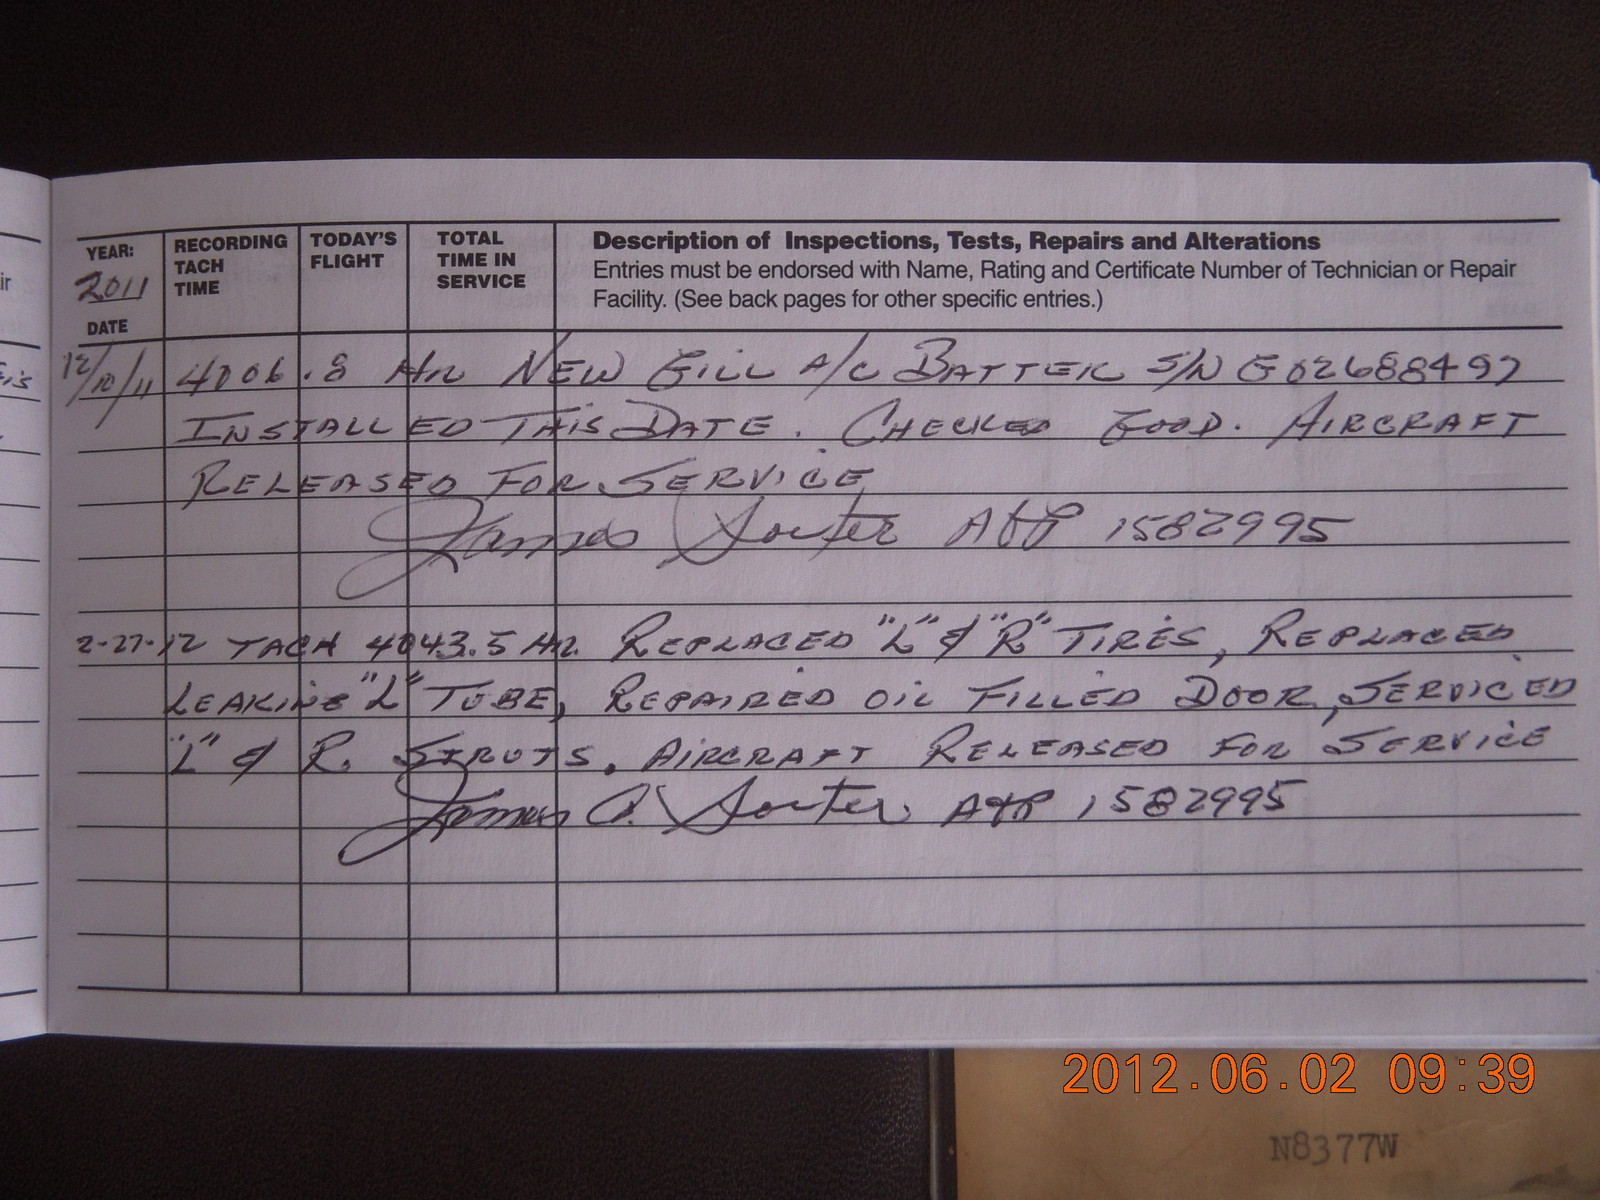 YEAR: 2011
DATE
RECORDING TACH TIME
TODAY'S FLIGHT
TOTAL TIME IN SERVICE
Description of Inspections, Tests, Repairs and Alterations
Entries must be endorsed with Name, Rating and Certificate Number of Technician or Repair
Facility. (See back pages for other specific entries.)
12/10/11 4006.8 Hr NEW GILL A/C BATTER S/N G02688497
INSTALLED THIS DATE. CHECKED GOOD. AIRCRAFT
RELEASED FOR SERVICE
James A&P 1582995
2-27-12 TACH 4043.5 Hr. REPLACED "L" & "R" TIRES, REPLACED
LEAKING "L" TUBE, REPAIRED OIL FILLED DOOR, SERVICED
"L" & R. STRUTS. AIRCRAFT RELEASED FOR SERVICE
James A&P 1582995
2012.06.02 09:39
N8377W